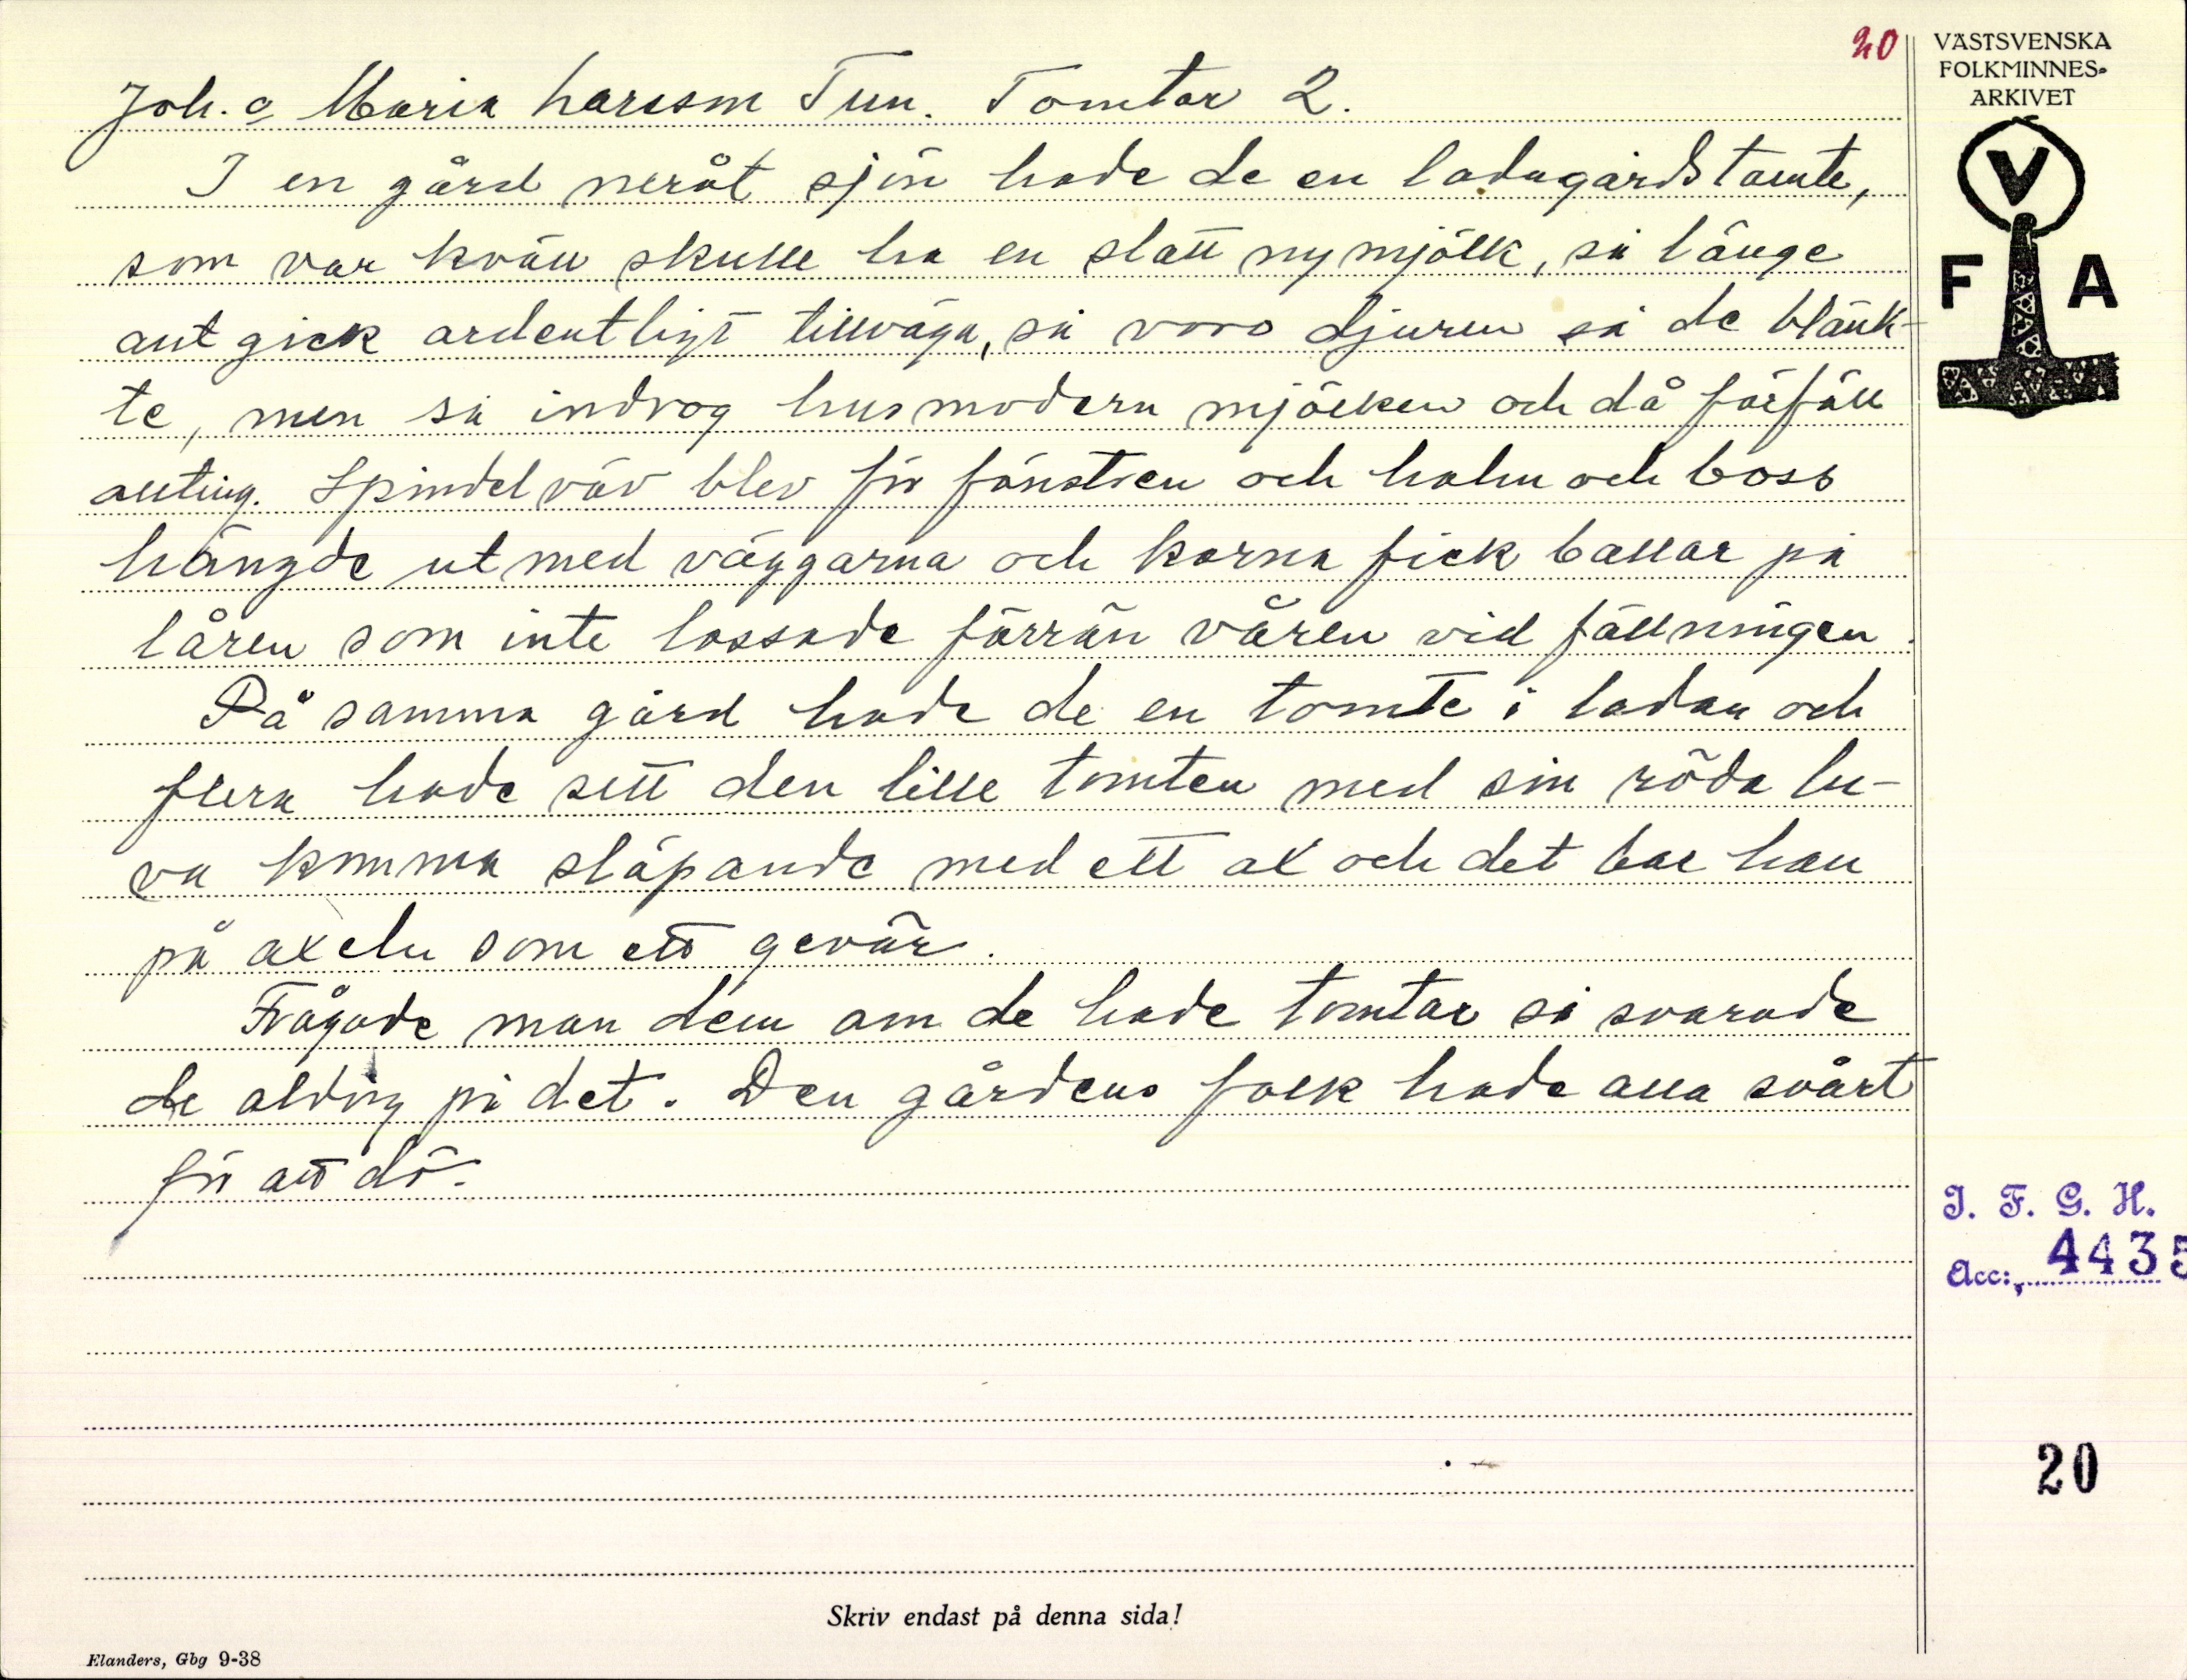 20
VÄSTSVENSKA
FOLKMINNES-
ARKIVET
V
F A
Joh. o Maria Larsson Tun. Tomtar 2.
I en gård neråt sjön hade de en ladugårdstomte,
som var kväll skulle ha en slatt nymjölk, så länge
allt gick ordentligt tillväga, så voro djuren så de blänk-
te, men så indrog husmodern mjölken och då förföll
allting. Spindelväv blev för fönstren och halm och boss
hängde ut med väggarna och korna fick ballar på
låren som inte lossade förrän våren vid fällningen.
På samma gård hade de en tomte i ladan och
flera hade sett den lille tomten med sin röda lu-
va komma släpande med ett ax och det bar han
på axeln som ett gevär.
Frågade man dem om de hade tomtar så svarade
de aldrig på det. Den gårdens folk hade alla svårt
för att dö.
I. F. G. H.
Acc: 4435
20
Skriv endast på denna sida!
Elanders, Gbg 9-38